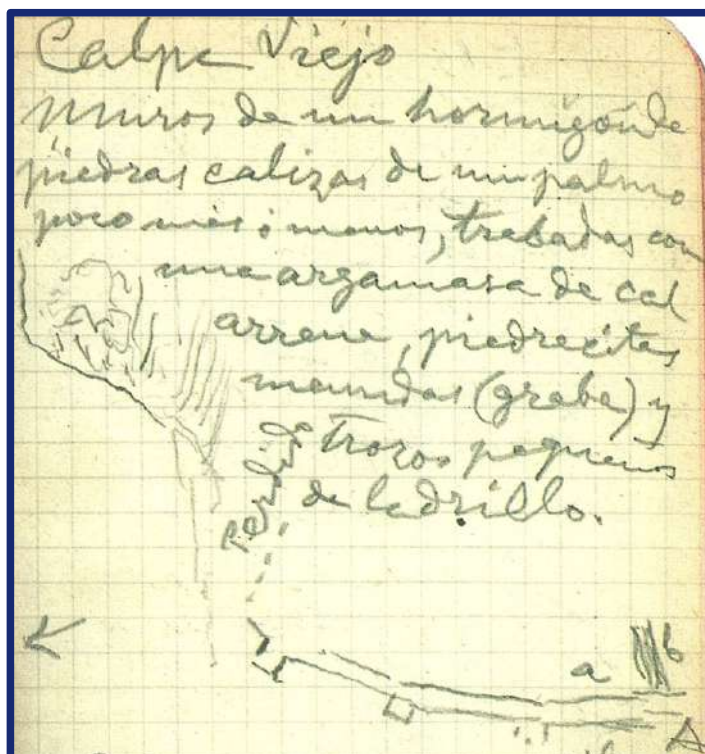 Calpe Viejo
Muros de un hormigón de
piedras calizas de un palmo
poco más ó menos, trabadas con
una argamasa de cal
arrena, piedrecitas
menudas (graba) y
trozos pequeños
de ladrillo.
Perdido
a b
A